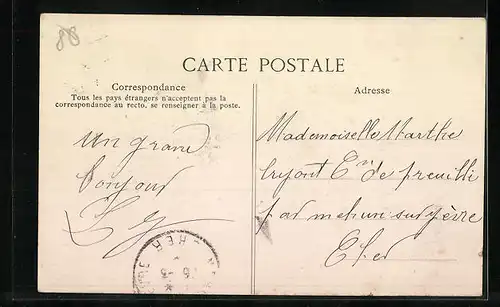 88
CARTE POSTALE
Correspondance
Tous les pays étrangers n'acceptent pas la
correspondance au recto, se renseigner à la poste.
Adresse
un grand
bonjour
Mademoiselle Marthe
de preuilli
par mehun sur yèvre
Cher
CHER